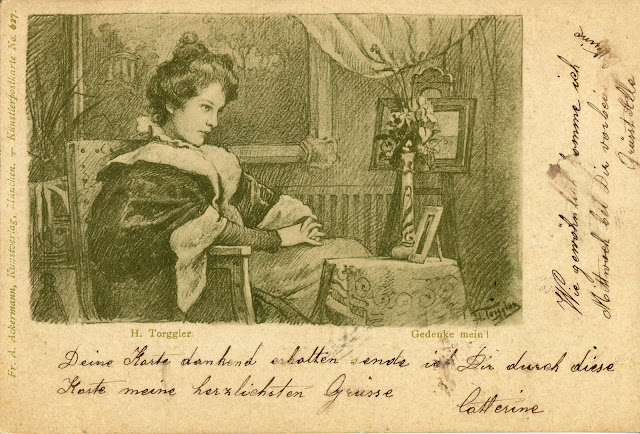 Fr. A. Ackermann, Kunstverlag, München. – Künstlerpostkarte No. 627.
H. Torggler.
Gedenke mein!
Deine Karte dankend erhalten sende ich Dir durch diese
Karte meine herzlichsten Grüsse
Catterine
Wie gewöhnlich komme ich
Mittwoch bei Dir vorbei
Grüsst Alle